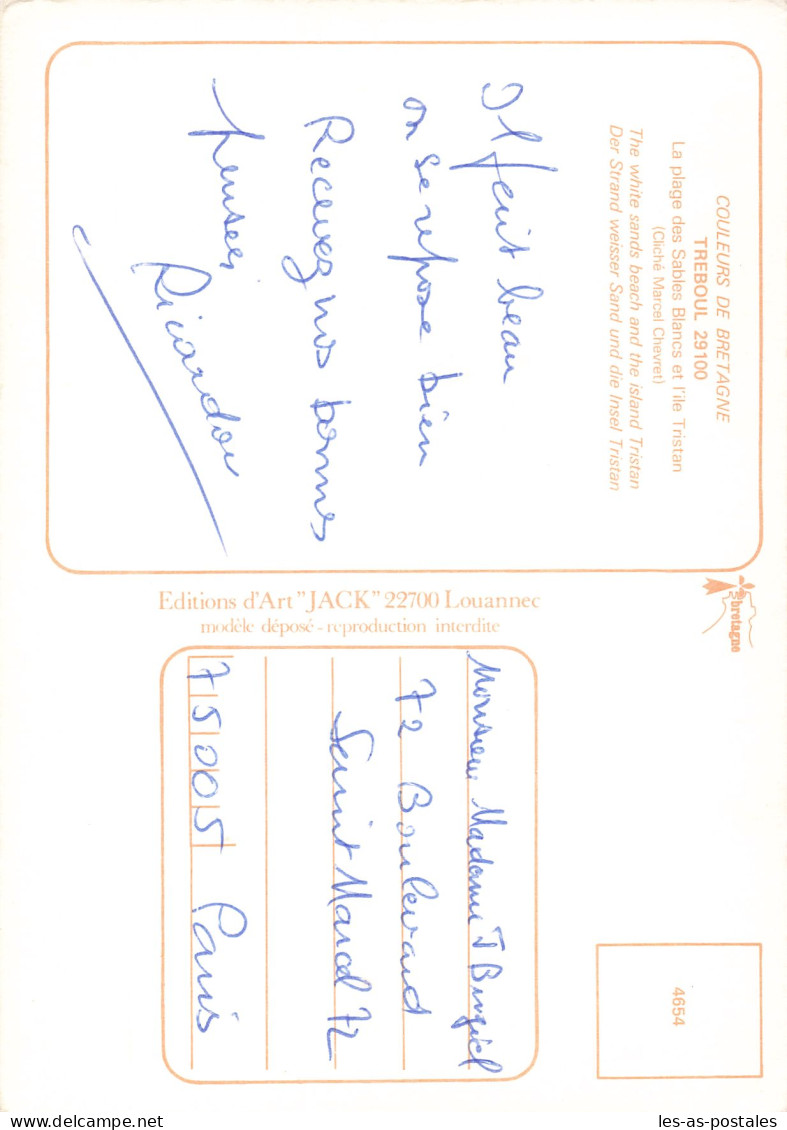 COULEURS DE BRETAGNE
TREBOUL 29100
La plage des Sables Blancs et l'île Tristan
(Cliché Marcel Chevret)
The white sands beach and the island Tristan
Der Strand weisser Sand und die Insel Tristan
Il fait beau
on se repose bien
Recevez nos bonnes
pensées
Ricardou
Editions d'Art "JACK" 22700 Louannec
modèle déposé - reproduction interdite
bretagne
Monsieur Madame J
72 Boulevard
Saint Marcel 72
75005 Paris
4654
les-as-postales